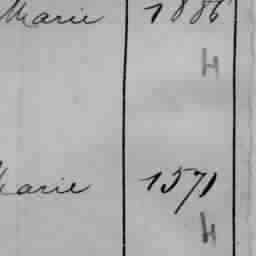 Marie 1886
H
Marie 1571
H